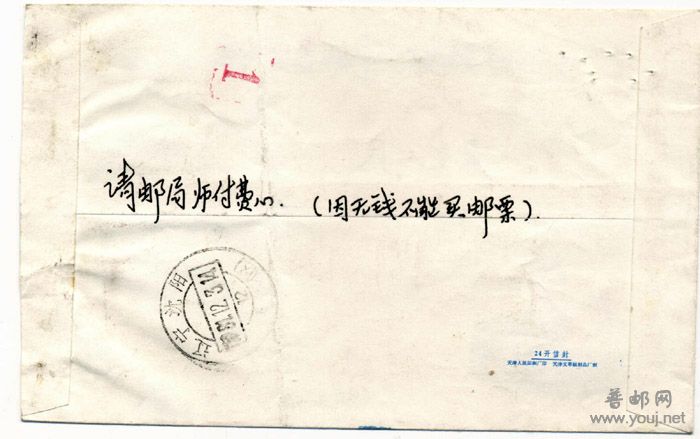 1
请邮局师付费心.（因无线不能买邮票）.
辽宁沈阳
24开信封
天津人民印刷厂印 天津文革纸制品厂制
普邮网
www.youj.net